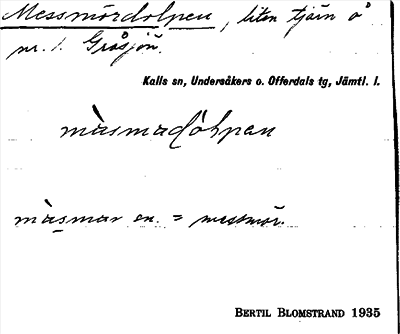 Messmördolpen, liten tjärn å
nr. 1. Gråsjön.
Kalls sn, Undersåkers o. Offerdals tg, Jämtl. l.
màsmaḍòlpan
màsmar en. = messmör.
BERTIL BLOMSTRAND 1935